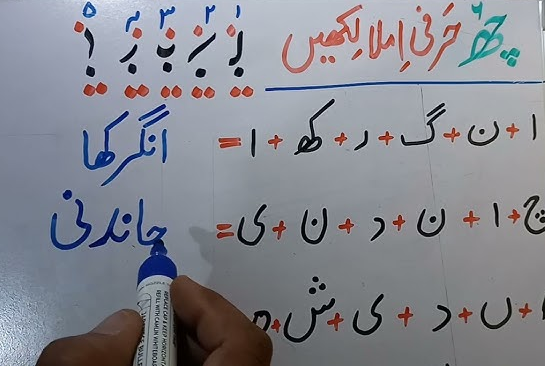 چھ ۶ حَرفی اِملا لِکھیں ۱ ۲ ۳ ۴ ۵
ا + ن + گ + ر + کھ + ا = انگرکھا
چ + ا + ن + د + ن + ی = چاندنی
ا + ن + د + ی + ش + ہ